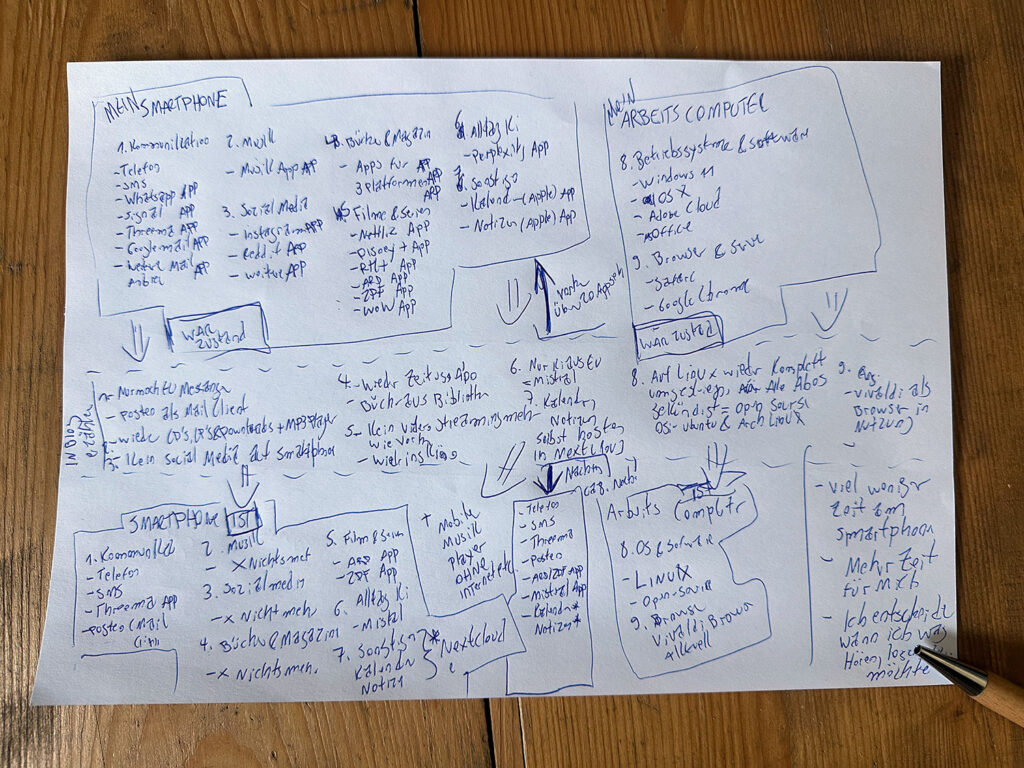 MEIN SMARTPHONE
1. Kommunikation
- Telefon
- SMS
- Whatsapp App
- Signal App
- Threema App
- Googlemail App
- Weitere Mail App
Anbieter
2. Musik
- Musik App App
3. Sozial Media
- Instagram App
- Reddit App
- weitere App
4. Bücher & Magazin
- Apps für App
3 Plattformen App
5. Filme & Serien
- Netflix App
- Disney + App
- RTL+ App
- ARD App
- ZDF App
- WOW App
6. Alltag Ki
- Perplexity App
7. Sonstiges
- Kalender (Apple) App
- Notizen (Apple) App
WAR
ZUSTAND
Vorher
über 20 Apps
MEIN
ARBEITSCOMPUTER
8. Betriebssysteme & Software
- Windows 11
- OS X
- Adobe Cloud
- Office
9. Browser &
- Safari
- Google Chrome
WAR ZUSTAND
IN BLOG
1. - Nurnoch EU Messenger
- Posteo als Mail Client
2. - wieder CD's, LP's & Downloads + MP3 Player
3. - Kein Social Media auf Smartphone
4. - Wieder Zeitungs Abo
- Bücher aus Bibliothek
5. - Kein Video Streaming mehr
wie vorher
- wieder ins Kino
6. Nur KI aus EU
= Mistral
7. Kalender
Notizen
selbst hosten
in NextCloud
8. Auf Linux wieder Komplett
umgestiegen, Alle Abos
gekündigt = Open Source
OS: Ubuntu & Arch Linux
9.
- Vivaldi als
Browser in
Nutzung
SMARTPHONE IST
1. Kommunikation
- Telefon
- SMS
- Threema App
- Posteo (Mail
2. Musik
- X Nichts mehr
3. Sozial medien
- X Nicht mehr
4. Bücher & Magazin
- X Nichts mehr.
5. Film & Serien
- ARD App
- ZDF App
6. Alltag Ki
- Mistral
7. Sonstiges
Kalender
Notizen
* Nextcloud
+ Mobile
Musik
player
OHNE
Internet etc
Nachher
- Telefon
- SMS
- Threema
- Posteo
- ARD/ZDF App
- Mistral App
- Kalender*
- Notizen*
IST
Arbeits Computer
8. OS & Software
- LINUX
- Open-Source
9. Browser
Vivaldi Browser
Aktuell
- viel weniger
Zeit am
Smartphone
- Mehr Zeit
für mich
- Ich entscheide
wann ich was
Hören,
möchte